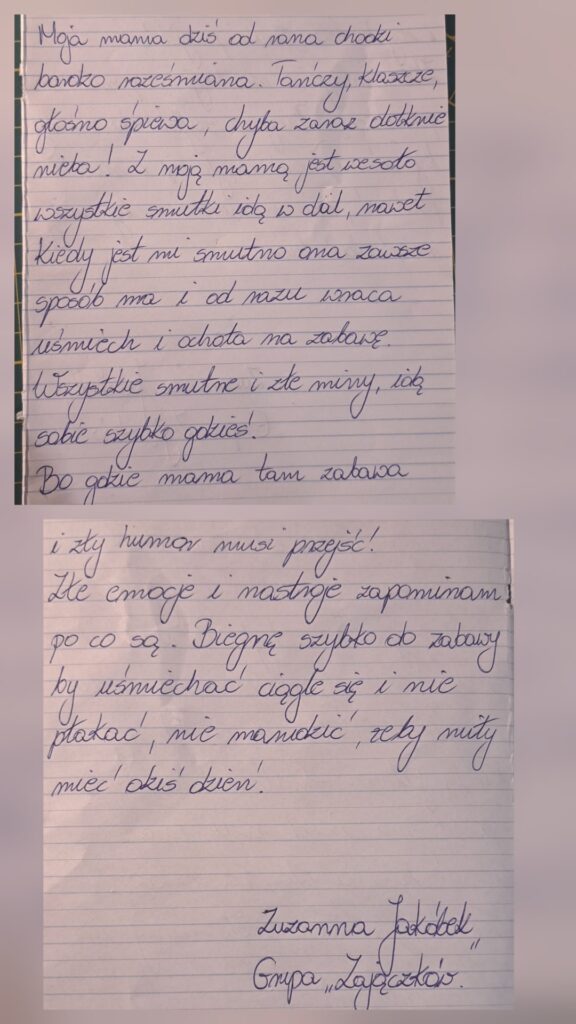 Moja mama dziś od rana chodzi
bardzo roześmiana. Tańczy, klaszcze,
głośno śpiewa, chyba zaraz dotknie
nieba! Z moją mamą jest wesoło
wszystkie smutki idą w dal, nawet
kiedy jest mi smutno ona zawsze
sposób ma i od razu wraca
uśmiech i ochota na zabawę.
Wszystkie smutne i złe miny, idą
sobie szybko gdzieś!
Bo gdzie mama tam zabawa
i zły humor musi przejść!
Złe emocje i nastroje zapominam
po co są. Biegnę szybko do zabawy
by uśmiechać ciągle się i nie
płakać, nie marudzić, żeby miły
mieć dziś dzień!
Zuzanna Jakóbek
Grupa „Zajączków."